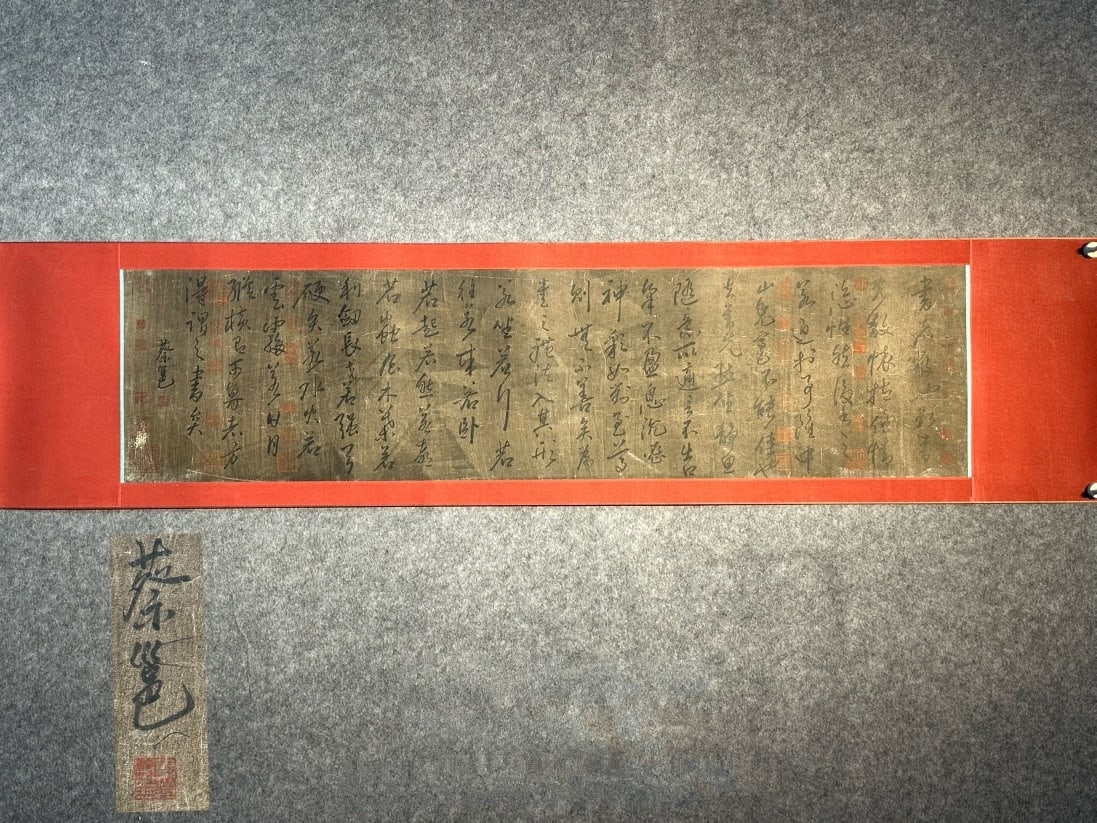 書者散也欲書
先散懷抱任情
恣性然後書之
若迫於事雖中
山兔毫不能佳也
夫書先默坐靜思
隨意所適言不出
氣不盈息沉密
神彩如對至尊
則無不善矣為
書之體入其形
若坐若行若
往若來若臥
若起若愁若喜
若蟲食木葉若
利劍長戈若強弓
硬矢若水火若
雲霧若日月
縱橫有可象者方
得謂之書矣
蔡邕
蔡邕